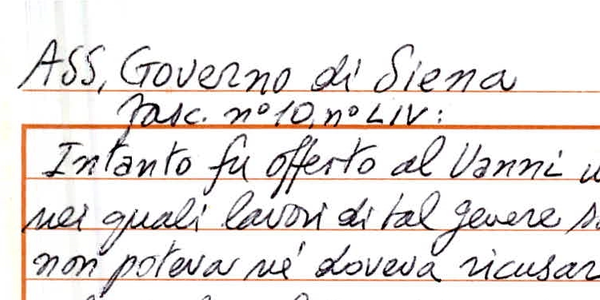 ASS, Governo di Siena
fasc. n° 10, n° LIV:
Intanto fu offerto al Vanni
nei quali lavori di tal genere
non poteva né doveva ricusar